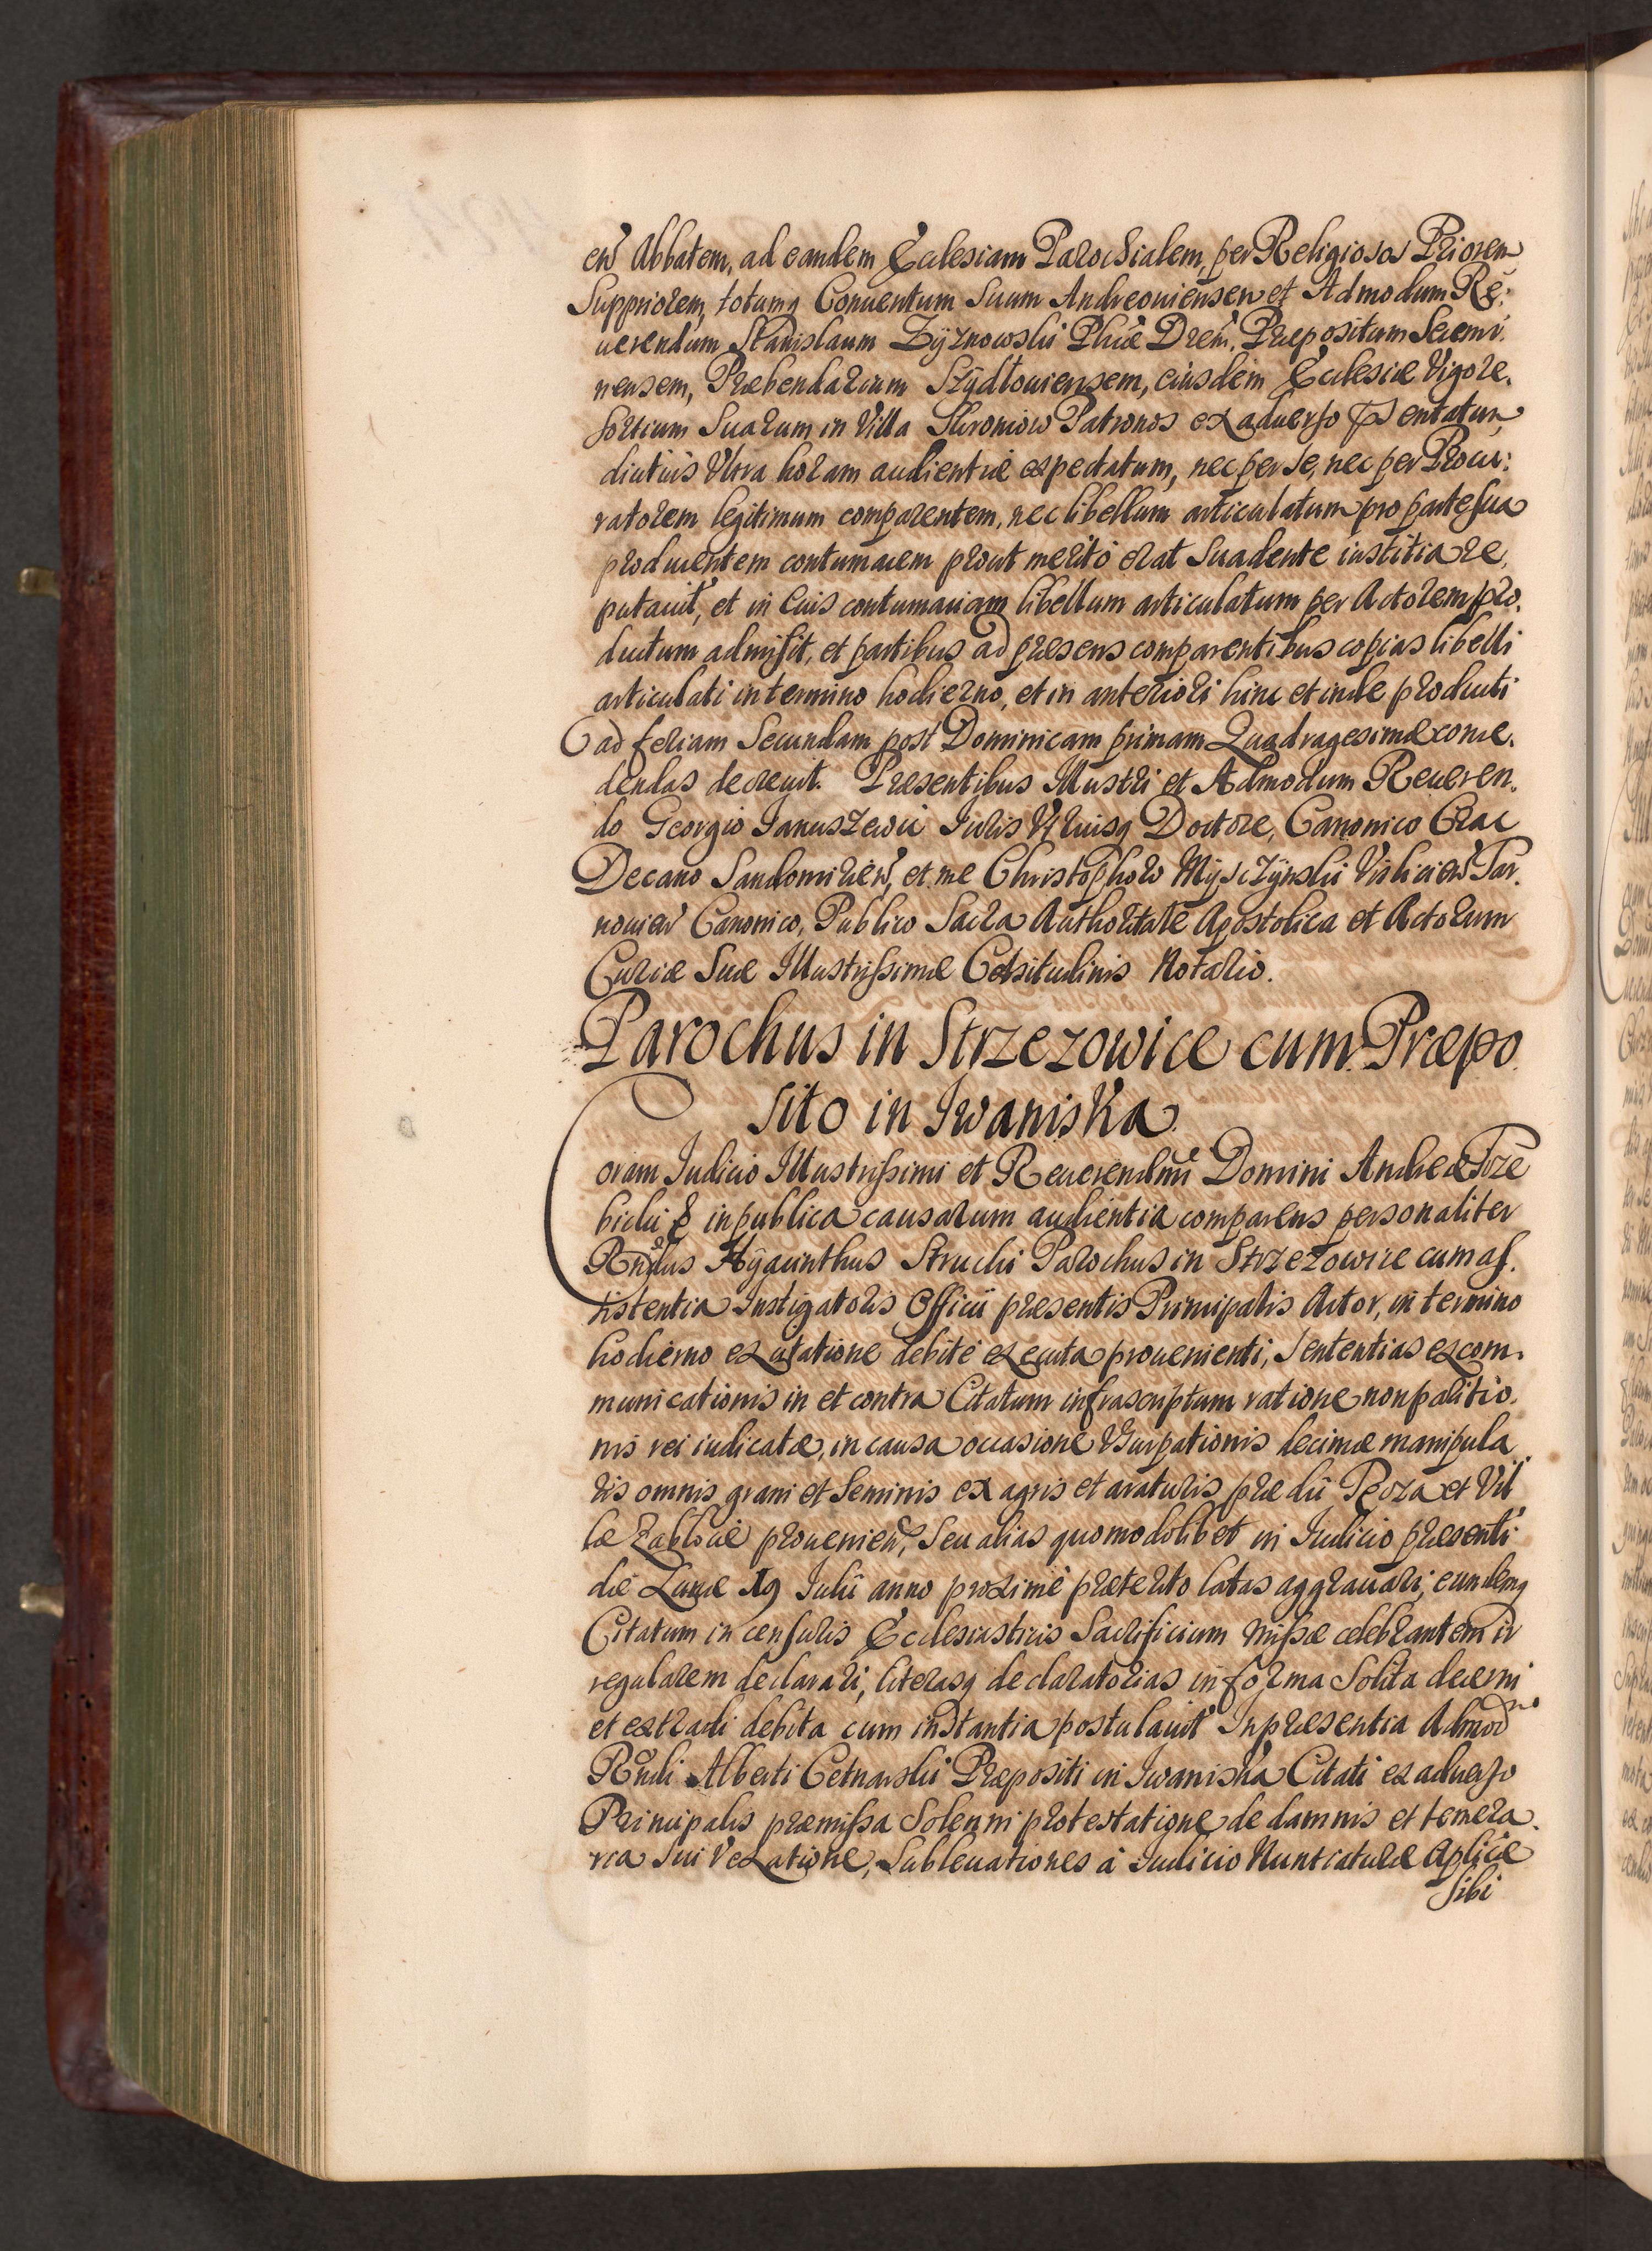 en Abbatem, ad eandem Ecclesiam Parochialem, per Religiosos Priorem
Suppriorem, totumq Conuentum Suum Andreouiensem et Admodum Re:
uerendum Stanislaum Zyznowski Phiæ Drem. Præpositum
nensem, Præbendarium Szydlouiensem, eiusdem Ecclesiæ Vigore
sortium Suarum in Villa Skroniow Patronos ex aduerso Pntatum,
diutius Vltra horam audientiæ expectatum, nec per Se, nec per Procu:
ratorem legitimum comparentem, nec libellum articulatum pro parte sua
producentem contumacem prout meritò erat Suadente iustitia re,
putauit, et in Cuis contumaciam libellum articulatum per Actorem pro,
ductum admisit, et partibus ad præsens comparentibus copias libelli
articulati in termino hodierno, et in anteriori hinc et inde producti
ad feriam Secundam post Dominicam primam Quadragesimæ conce,
dendas decreuit. Præsentibus Illustri et Admodum Reueren,
do Georgio Januszewic Juris Vtriusq Doctore, Canonico Crac
Decano Sandomirien, et me Christophoro Mijsczynski Vislicien Tar,
nouien Canonico, Publico Sacra Authoritate Apostolica et Actorum
Curiæ Suæ Illustrissimæ Celsitudinis Notario.
Parochus in Strzezowice cum Præpo
sito in Iwaniska.
Coram Iudicio Illustrissimi et Reuerendmi Domini Andreæ Trze
bicki & in publica causarum audientia comparens personaliter
Rndus Hyacinthus Strucki Parochus in Strzezowice cum as,
sistentia Instigatoris Officii præsentis Principalis Actor, in termino
hodierno ex citatione debitè executa prouenienti, Sententias excom,
municationis in et contra Citatum infrascriptum ratione non paritio,
nis rei iudicatæ, in causa occasione Vsurpationis decimæ manipula
ris omnis grani et Seminis ex agris et araturis prædii et Vil
læ Zabłocie prouenien, Seu alias quomodolibet in Iudicio præsenti
die Lunæ 19 Iulii anno proximè præterito latas aggrauari, eundemq
Citatum in censuris Ecclesiasticis Sacrificium Missæ celebrantem ir
regularem declarari, literasq declaratorias in forma Solita decerni
et extradi debita cum instantia postulauit Inpræsentia Admod
Rndi Alberti Cetnarski Præpositi in Iwaniska Citati ex aduerso
Principalis præmissa Solenni protestatione de damnis et temera,
ria Sui Vexatione, Subleuationes à Iudicio Nuntiaturæ Aplicæ
Sibi